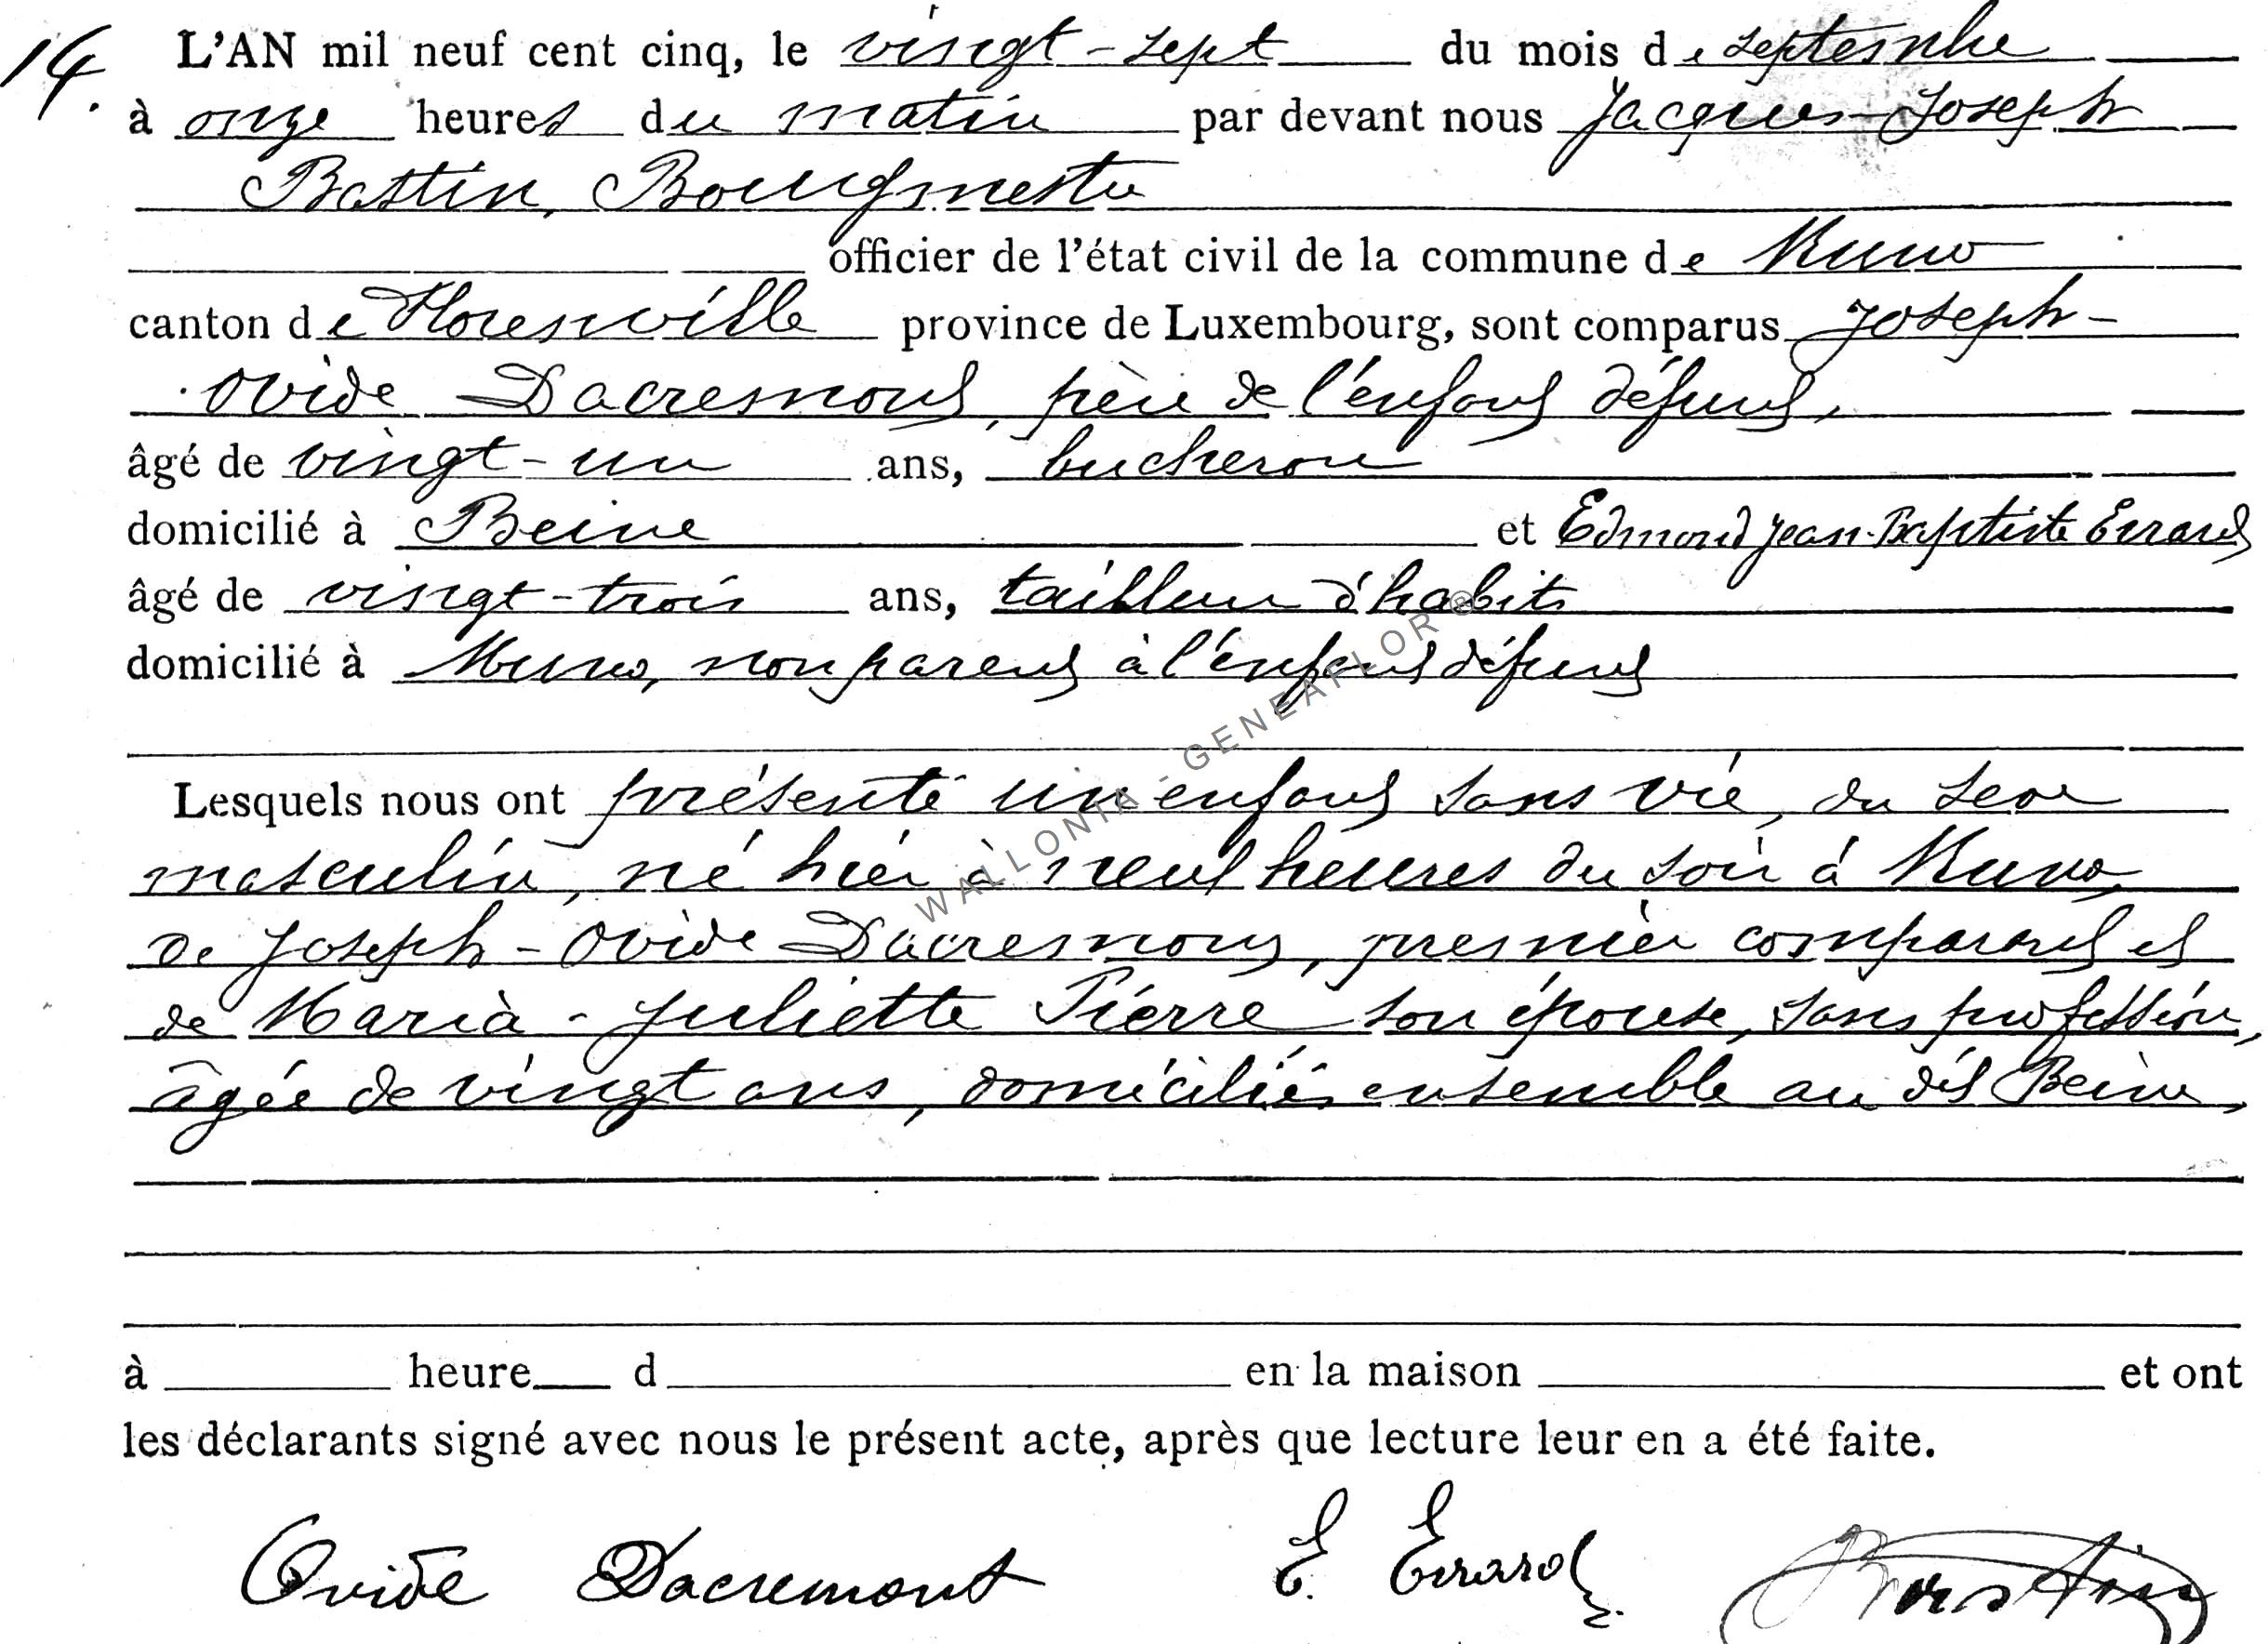 14.
L'AN mil neuf cent cinq, le vingt-sept du mois de septembre
à onze heures du matin par devant nous Jacques-Joseph
Bastin, Bourgmestre
officier de l'état civil de la commune de Muno
canton de Florenville province de Luxembourg, sont comparus Joseph-
Ovide Dacremont, père de l'enfant défunt,
âgé de vingt-un ans, bucheron
domicilié à Beine et Edmond Jean-Baptiste Errard
âgé de vingt-trois ans, tailleur d'habits
domicilié à Muno, non parent à l'enfant défunt
Lesquels nous ont présenté un enfant sans vie, du sexe
masculin, né hier à neuf heures du soir à Muno,
de Joseph-Ovide Dacremont, premier comparant et
de Maria-Juliette Pierre son épouse, sans profession,
âgée de vingt ans, domiciliés ensemble au dit Beine,
à heure d en la maison et ont
les déclarants signé avec nous le présent acte, après que lecture leur en a été faite.
Ovide Dacremont E. Errard Bastin
WALLONIA - GENEAFLOR ®